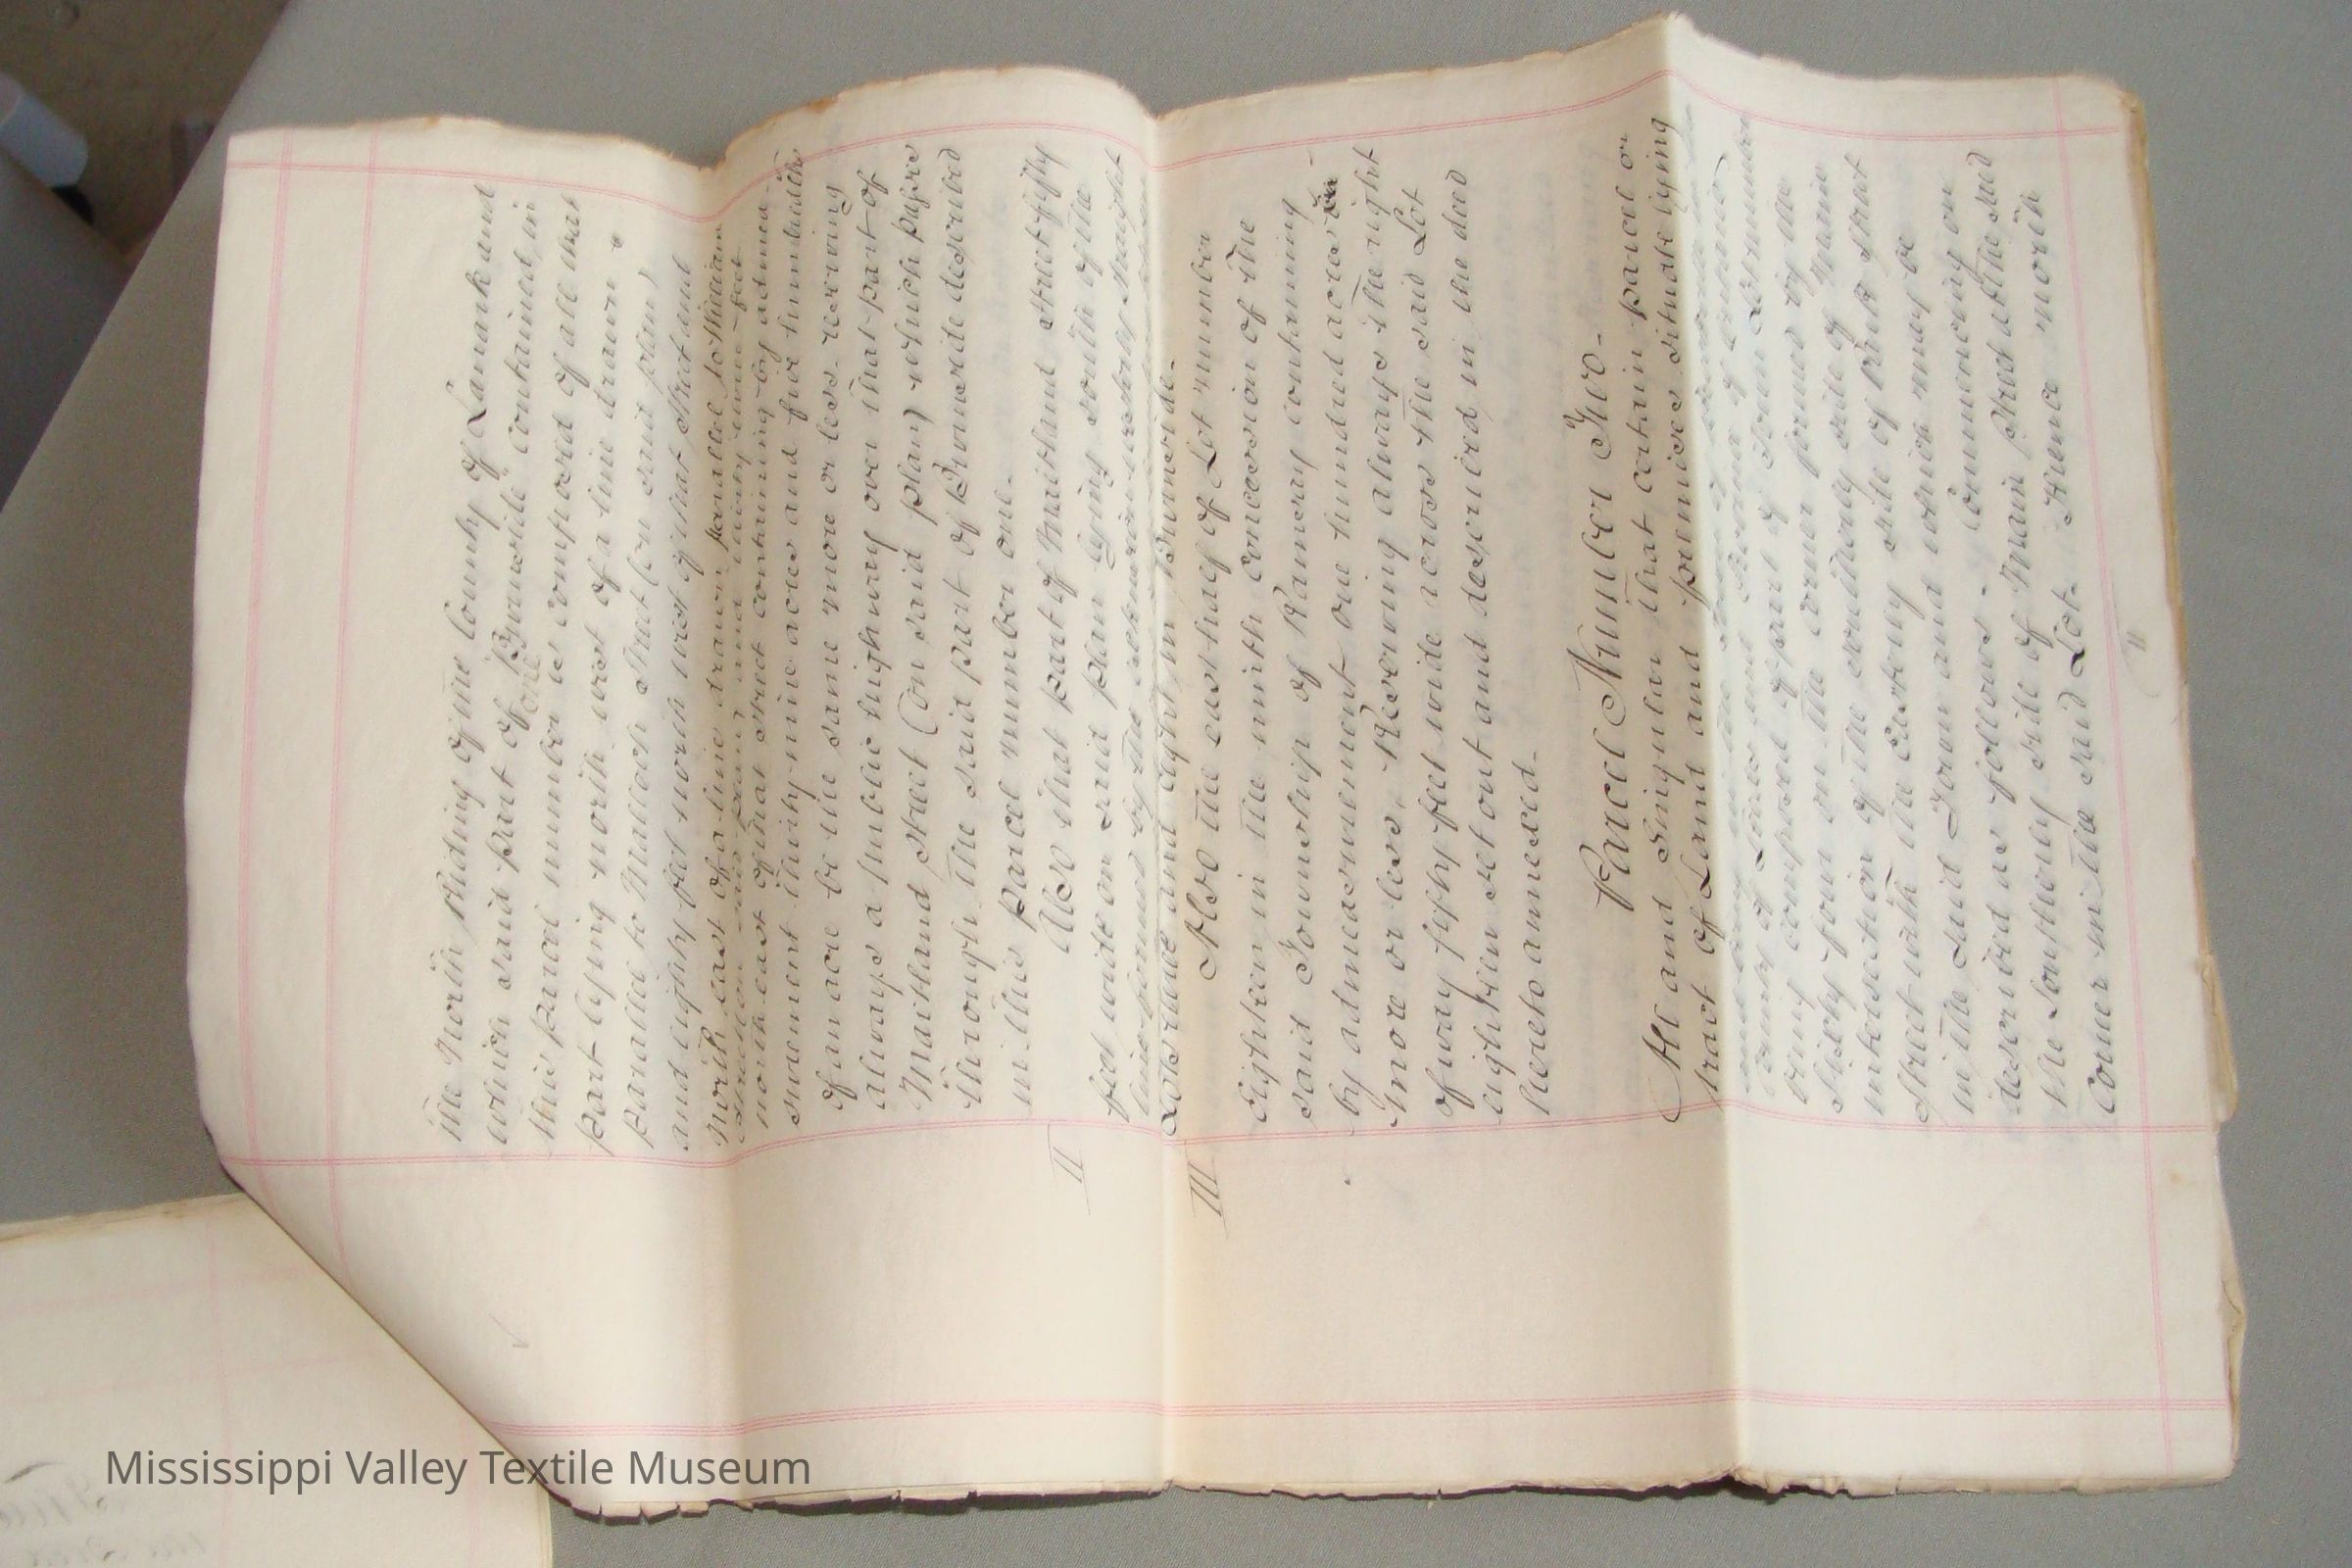 the North Riding of the County of Lanark and
which said part of "Brownside" contained in
one
this parcel number is composed of all that
part lying north west of a line drawn
parallel to Malloch Street (on said plan)
and eighty feet north west of that Street and
North east of a line drawn parallel to William
Street (on said plan) and ninety nine feet
north east of that Street containing by admea-
surement thirty nine acres and five hundredths
of an acre be the same more or less. reserving
always a public highway over that part of
Maitland Street (on said plan) which passes
through the said part of Brownside described
in this parcel number one.
II
Also that part of Maitland Street fifty
feet wide on said plan lying south of the
line formed by the
Lots three and eight in Brownside.
III
Also the east half of Lot number
Eighteen in the ninth Concession of the
said Township of Ramsay containing
by admeasurement one hundred acres
more or less, Reserving always the right
of way fifty feet wide across the said Lot
eighteen set out and described in the deed
hereto annexed.
Parcel Number Two.
All and Singular that certain parcel or
tract of Land and premises situate lying
and being in the
County of Lanark and Province of Ontario,
being composed of part of Town Lot number
Sixty four on the corner formed by the
intersection of the southerly side of Main
Street with the Easterly side of Bridge Street
in the said Town and which may be
described as follows. Commencing on
the Southerly side of Main Street at the said
Corner in the said Lot. Thence north
11
Mississippi Valley Textile Museum